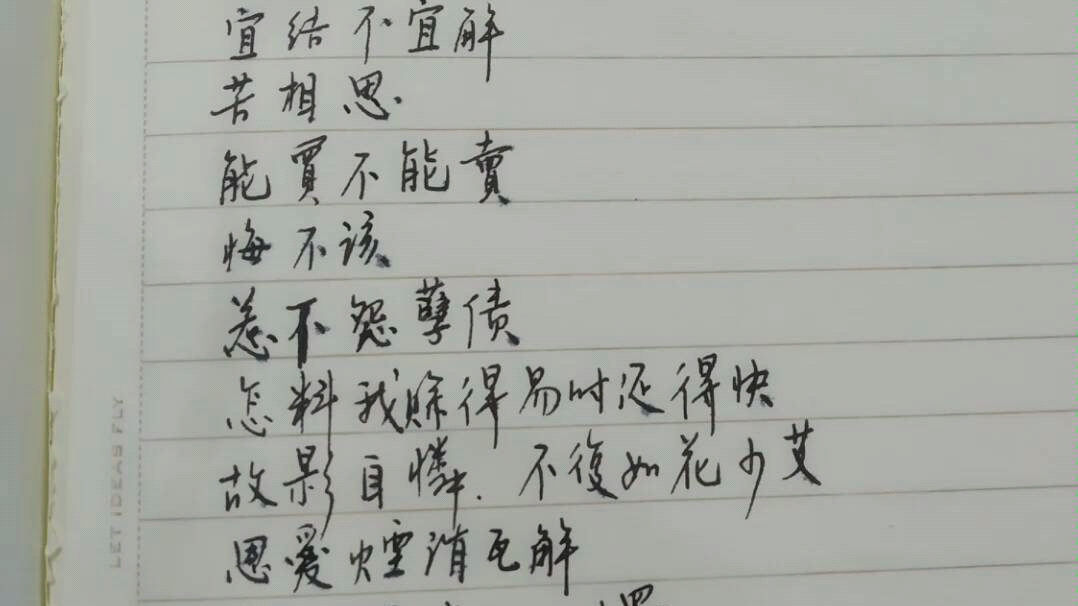 宜结不宜解
苦相思
能買不能賣
悔不该
惹不怨孽债
怎料我賒得易时还得快
故影自憐.不復如花少艾
恩爱煙消瓦解
LET IDEAS FLY